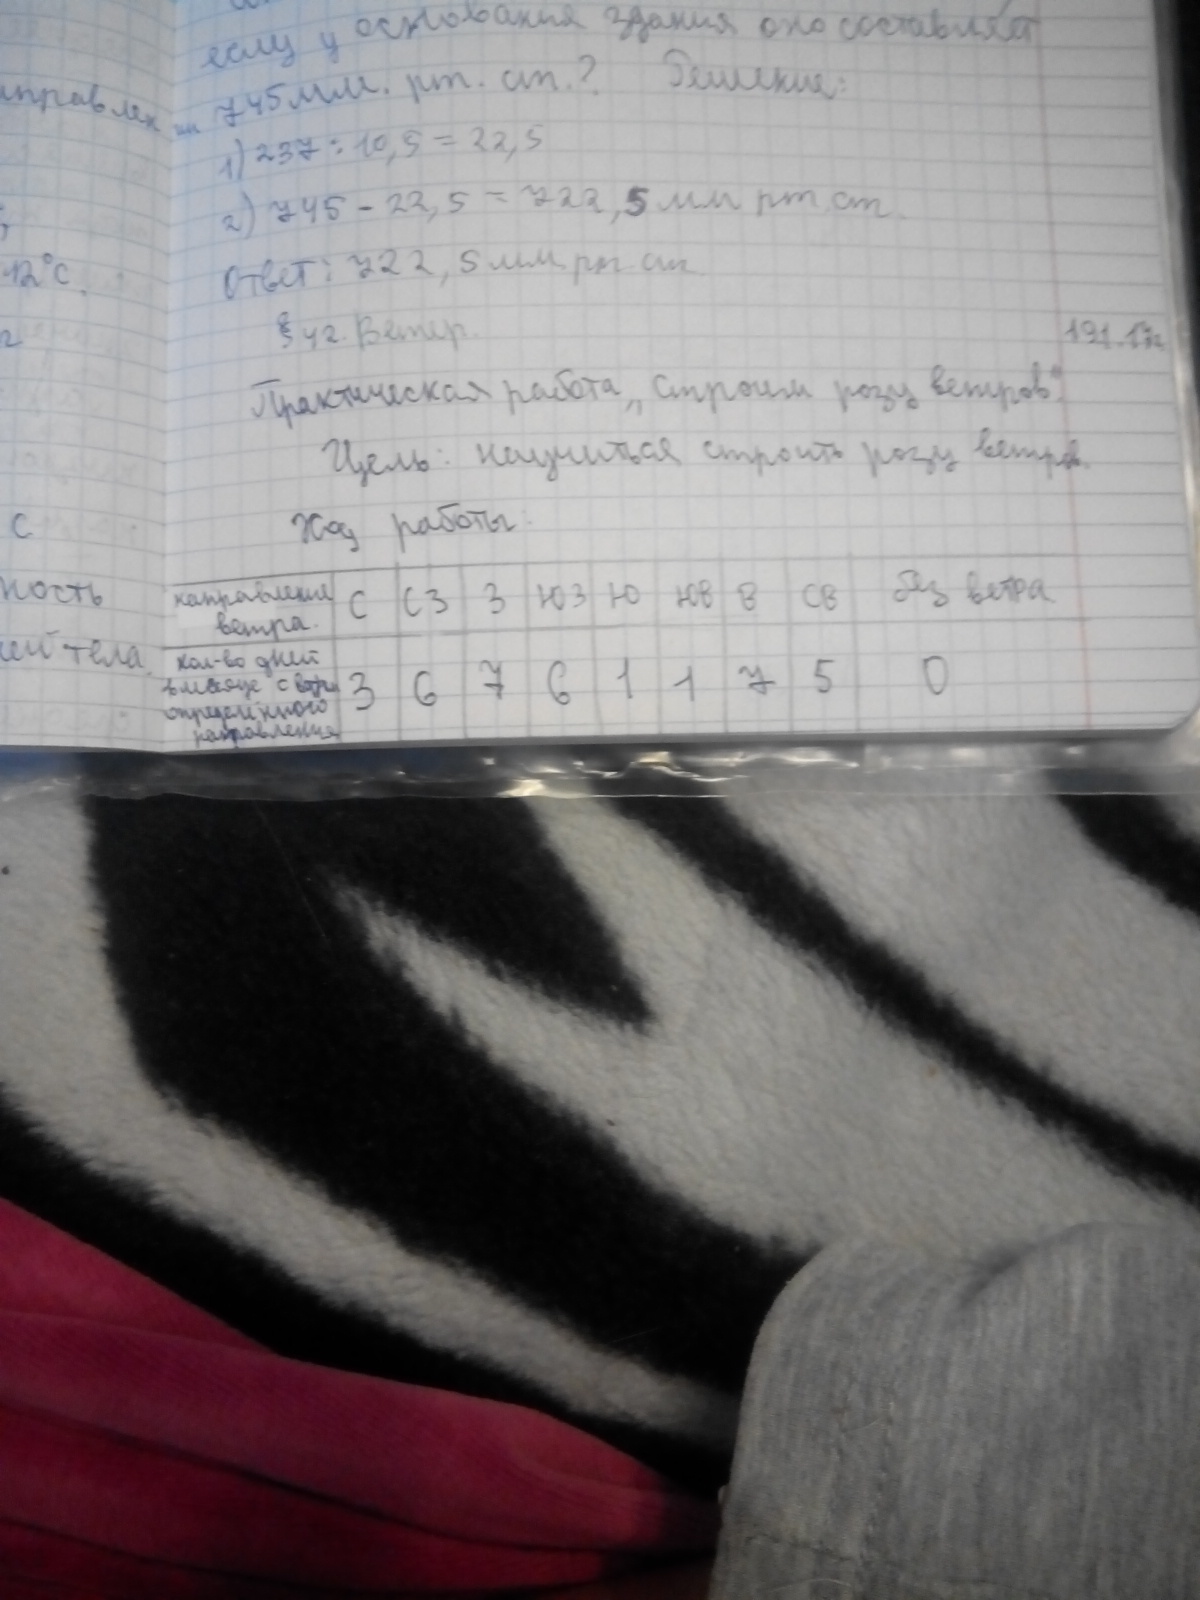 если у основания здания оно составляет
745 мм. рт. ст.? Решение:
1) 237 : 10,5 = 22,5
2) 745 - 22,5 = 722,5 мм рт ст.
Ответ: 722,5 мм рт ст
§ 42. Ветер.
Практическая работа „Строим розу ветров".
Цель: научиться строить розу ветров.
Ход работы:
направление ветра. С СЗ З ЮЗ Ю ЮВ В СВ без ветра
кол-во дней
в месяце с
определённого
направления 3 6 7 6 1 1 7 5 0
12°С.
с
ность
тела